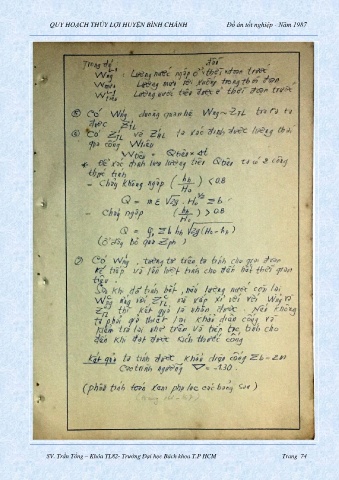 QUY HOẠCH THỦY LỢI HUYỆN BÌNH CHÁNH Đồ án tốt nghiệp - Năm 1987
Trong đó
: Lượng nước ngập ở thời đoạn trước
: Lượng mưa rơi xuống trong thời đoạn
: Lượng nước tiêu được ở thời đoạn trước
⑤ Có Wng dùng quan hệ W~ZTL tra ra ta
được ZTL
⑥ Có ZTL và ZHL ta xác định được lượng tháo
qua cống Wtiêu
Wtiêu = Qtiêu × Δt
Để xác định lưu lượng tiêu Qtiêu ta có 2 công
thức tính
- Chảy không ngập (hn/Ho) < 0.8
Q = m ε √2g . Ho^3/2 Σb
- Chảy ngập (hn/Ho) > 0.8
Σb hn √2g(Ho-hn)
(Ở đây bỏ qua Zph)
⑦ Có Wng, tương tự trên ta tính cho giai đoạn
kế tiếp và lần lượt tính cho đến hết thời gian
tiêu.
Sau khi đã tính hết, nếu lượng nước còn lại
và
thì kết quả là nhận được. Nếu không
ta phải giả thiết lại khẩu diện cống và
kiểm tra lại như trên và tiếp tục tính cho
đến khi đạt được kích thước cống
Kết quả ta tính được khẩu diện cống Σb = 2m
Cao trình ngưỡng ∇ = -1.30.
(phần tính toán xem phụ lục các bảng sau)
SV. Trần Tống – Khóa TL82- Trường Đại học Bách khoa T.P HCM Trang 74